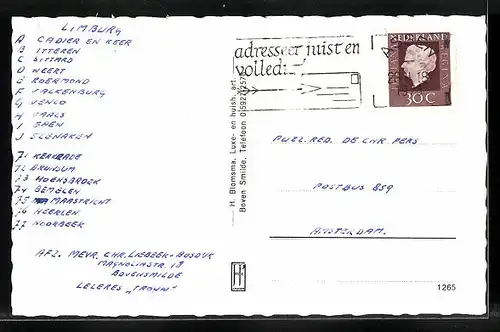 LIMBURG
A CADIER EN KEER
B ITTEREN
C SITTARD
D WEERT
E ROERMOND
F VALKENBURG
G VENLO
H VAALS
I
J SLENAKEN
71 KERKRADE
72 BRUNSUM
73 HOENSBROEK
74 BEMELEN
75 MAASTRICHT
76 HEERLEN
77 NOORBEEK
AFZ. MEVR. CHR. LIEBEEK-
MAGNOLIASTR. 18
BOVENSMILDE
LELERES "TROUW"
H. Blomsma. Luxe- en huish. art.
Boven Smilde. Telefoon 05921257
adresseer juist en
volledi
NEDERLAND
30 C
PUZL. RED. DE CHR. PERS
POSTBUS 859
AMSTERDAM.
H
1265